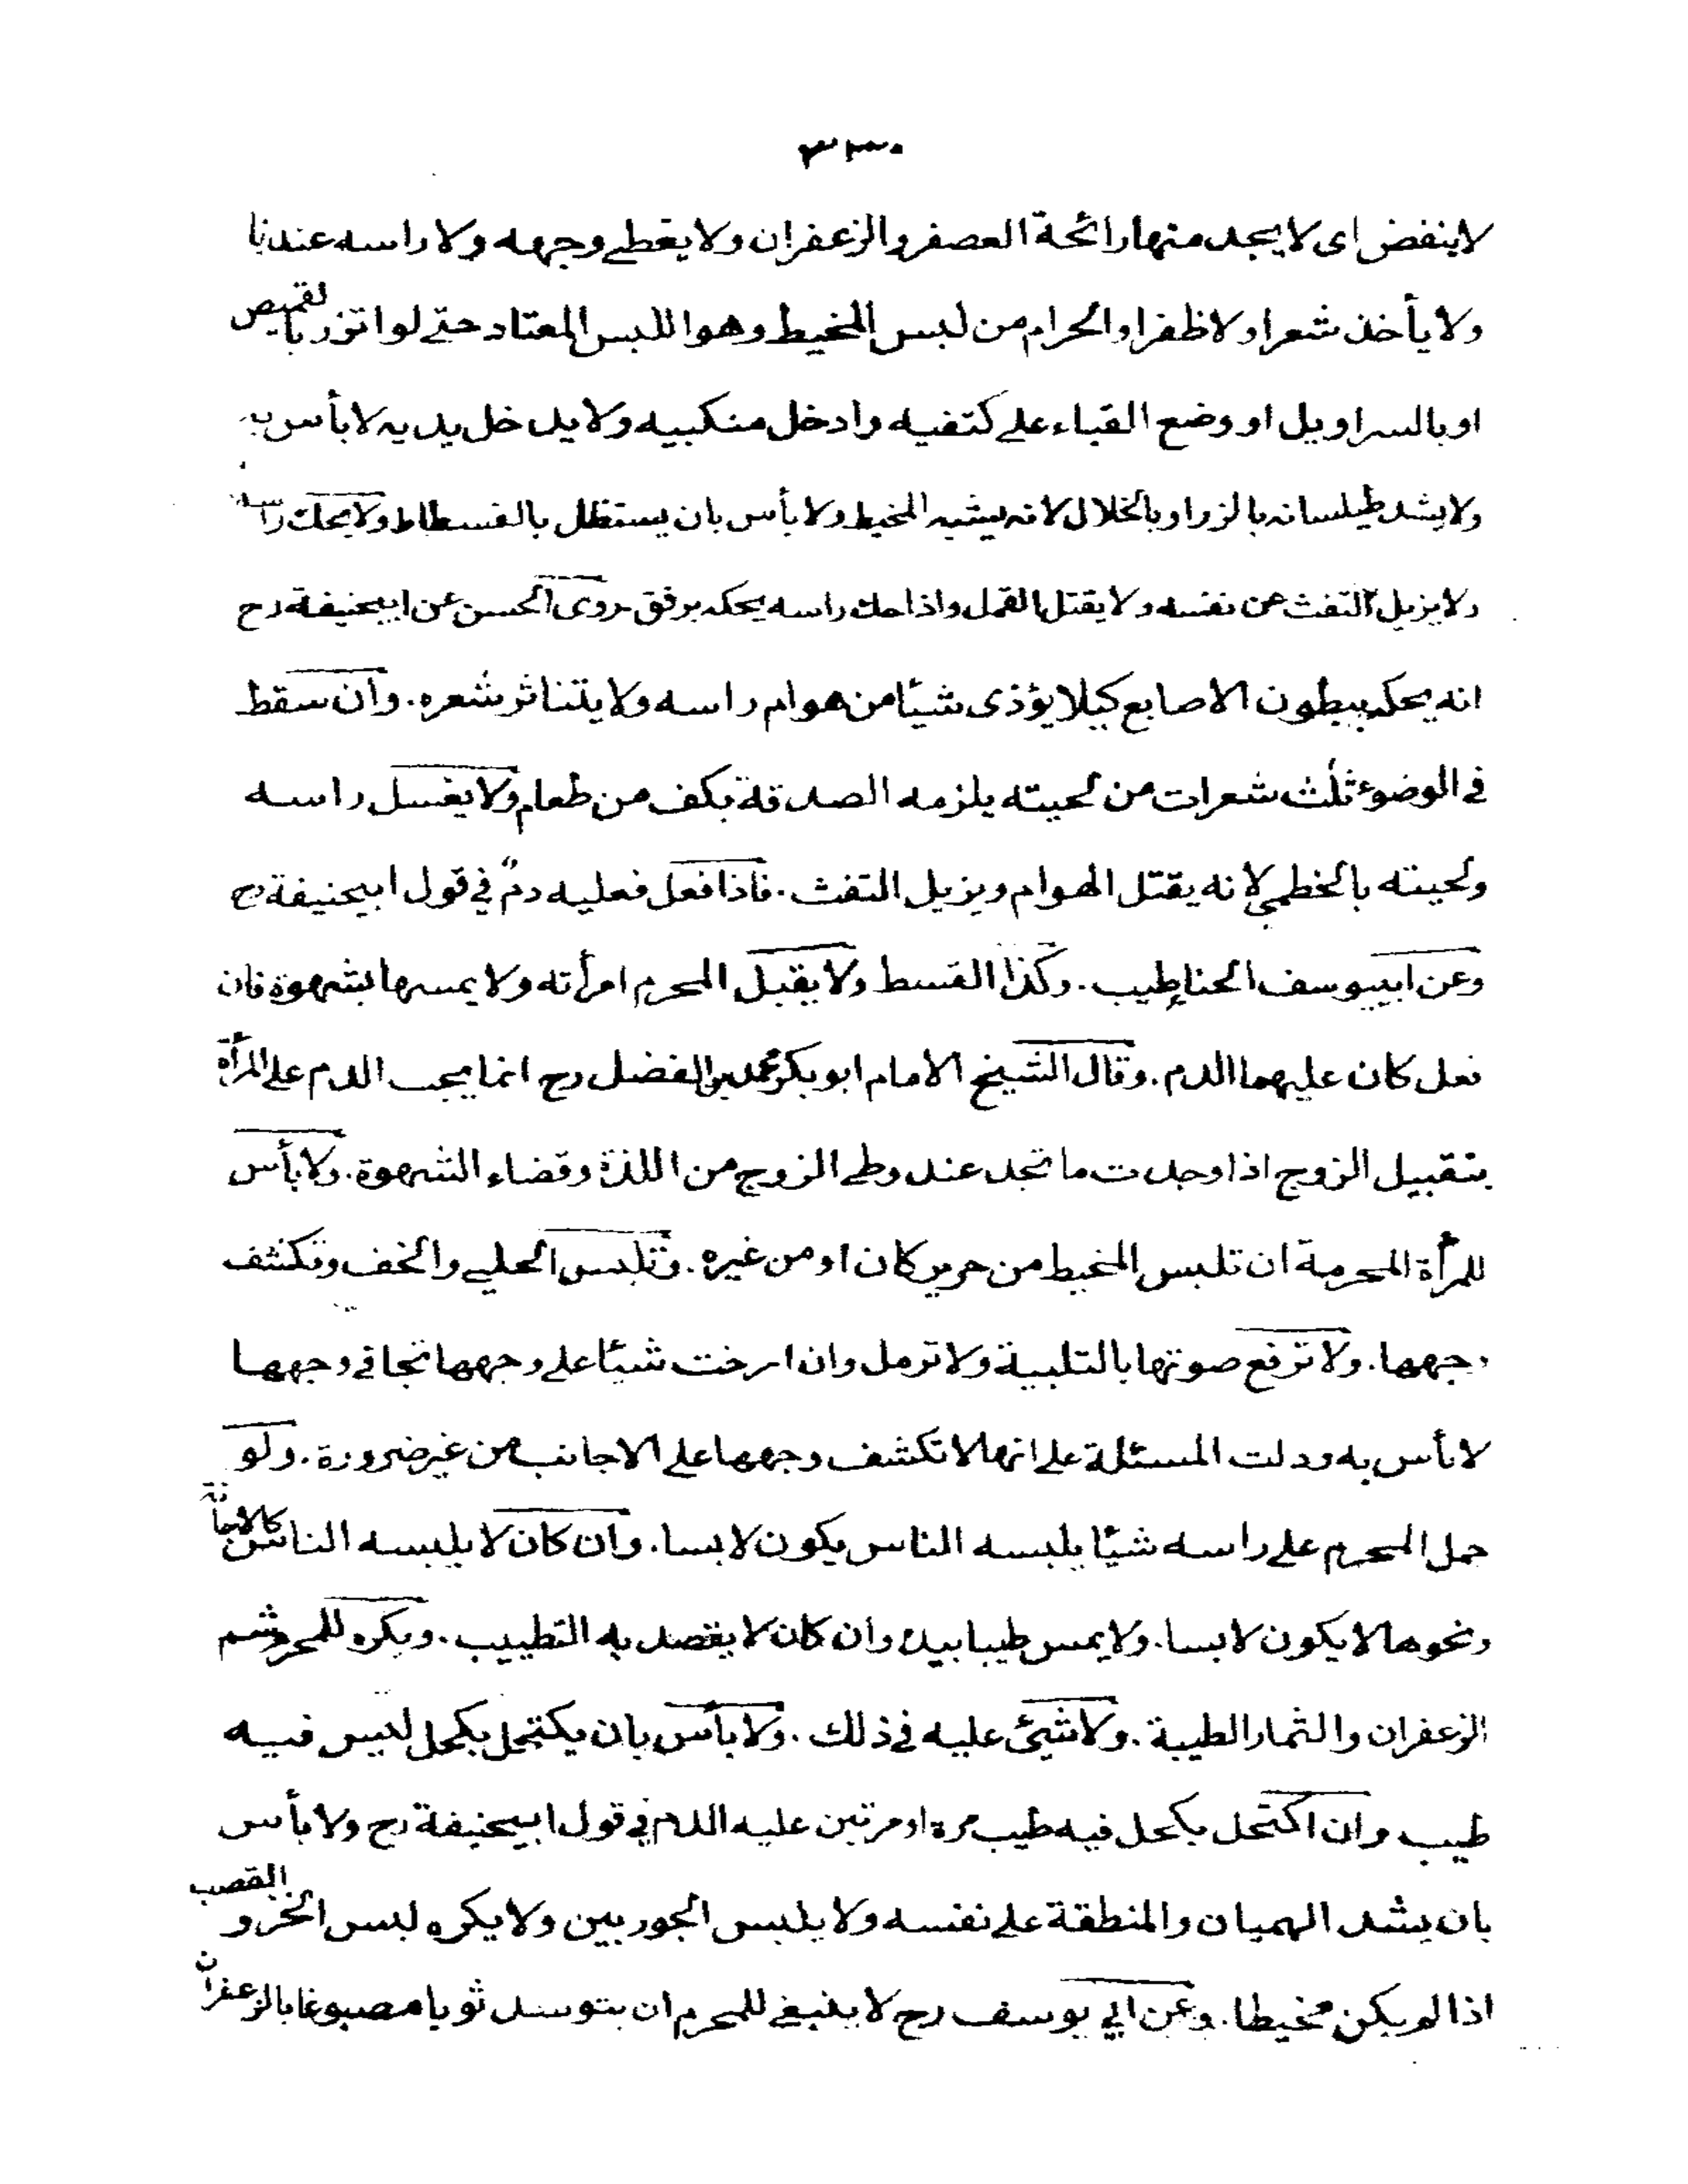 لاينفض اى لا يجد منها رائحة العصفر والزعفران ولا يغطے وجهه ولا راسه عندنا
ولا يأخذ شعرا ولا ظفرا والحرام من لبس المخيط وهو اللبس المعتاد حتے لو اتزر بالقميص
او بالسراويل او وضع القباء علے كتفيه وادخل منكبيه ولا يدخل يديه لا بأس به
ولا يشد طيلسانه بالزر او بالخلال لانه يشبه المخيط ولا بأس بان يستظل بالفسطاط ولا يحك راسه
ولا يزيل التفث عن نفسه ولا يقتل القمل واذا حك راسه يحكه برفق روى الحسن عن ابيحنيفة رح
انه يحكه ببطون الاصابع كيلا يؤذى شيئا من هوام راسه ولا يتناثر شعره . وان سقط
فے الوضوء ثلث شعرات من لحيته يلزمه الصدقة بكف من طعام ولا يغسل راسه
ولحيته بالخطمي لانه يقتل الهوام ويزيل التفث . فاذا فعل فعليه دم في قول ابيحنيفة رح
وعن ابييوسف الحناء طيب . وكذا القسط ولا يقبل المحرم امرأته ولا يمسها بشهوة فان
فعل كان عليهما الدم . وقال الشيخ الامام ابو بكر محمد بن الفضل رح انما يجب الدم علے المرأة
بتقبيل الزوج اذا وجدت ما تجد عند وطے الزوج من اللذة وقضاء الشهوة . ولا بأس
للمرأة المحرمة ان تلبس المخيط من حرير كان او من غيره . وتلبس الحليے والخف وتكشف
وجهها . ولا ترفع صوتها بالتلبية ولا ترمل وان ارخت شيئا علے وجهها تجافے وجهها
لا بأس به ودلت المسئلة علے انها لا تكشف وجهها علے الاجانب من غير ضرورة . ولو
حمل المحرم علے راسه شيئا يلبسه الناس يكون لابسا . وان كان لا يلبسه الناس كالاجانة
ونحوها لا يكون لابسا . ولا يمس طيبا بيده وان كان لا يقصد به التطييب . ويكره للمحرم شم
الزعفران والثمار الطيبة . ولا شيئ عليه فے ذلك . ولا بأس بان يكتحل بكحل ليس فيه
طيب وان اكتحل بكحل فيه طيب مرة او مرتين عليه الدم في قول ابيحنيفة رح ولا بأس
بان يشد الهميان والمنطقة علے نفسه ولا يلبس الجوربين ولا يكره لبس الخز و القصب
اذا لم يكن مخيطا . وعن ابي يوسف رح لا ينبغے للمحرم ان يتوسد ثوبا مصبوغا بالزعفران